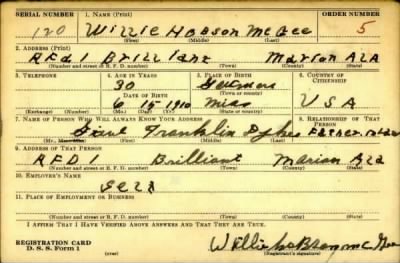 SERIAL NUMBER 1. NAME (Print) ORDER NUMBER
120 Willie Hobson McGee 5
(First) (Middle) (Last)
2. ADDRESS (Print)
RFd 1 Brilliant Marion Ala
(Number and street or R. F. D. number) (Town) (County) (State)
3. TELEPHONE 4. AGE IN YEARS 5. PLACE OF BIRTH 6. COUNTRY OF CITIZENSHIP
30
DATE OF BIRTH (Town or county)
6 15 1910 Miss USA
(Exchange) (Number) (Mo.) (Day) (Yr.) (State or country)
7. NAME OF PERSON WHO WILL ALWAYS KNOW YOUR ADDRESS 8. RELATIONSHIP OF THAT PERSON
Franklin Dykes Father
(Mr., Mrs., Miss) (First) (Middle) (Last)
9. ADDRESS OF THAT PERSON
RFD 1 Brilliant Marion Ala
(Number and street or R. F. D. number) (Town) (County) (State)
10. EMPLOYER'S NAME
Self
11. PLACE OF EMPLOYMENT OR BUSINESS
(Number and street or R. F. D. number) (Town) (County) (State)
I AFFIRM THAT I HAVE VERIFIED ABOVE ANSWERS AND THAT THEY ARE TRUE.
REGISTRATION CARD Willie Hobson McGee
D. S. S. Form 1 (Registrant's signature)